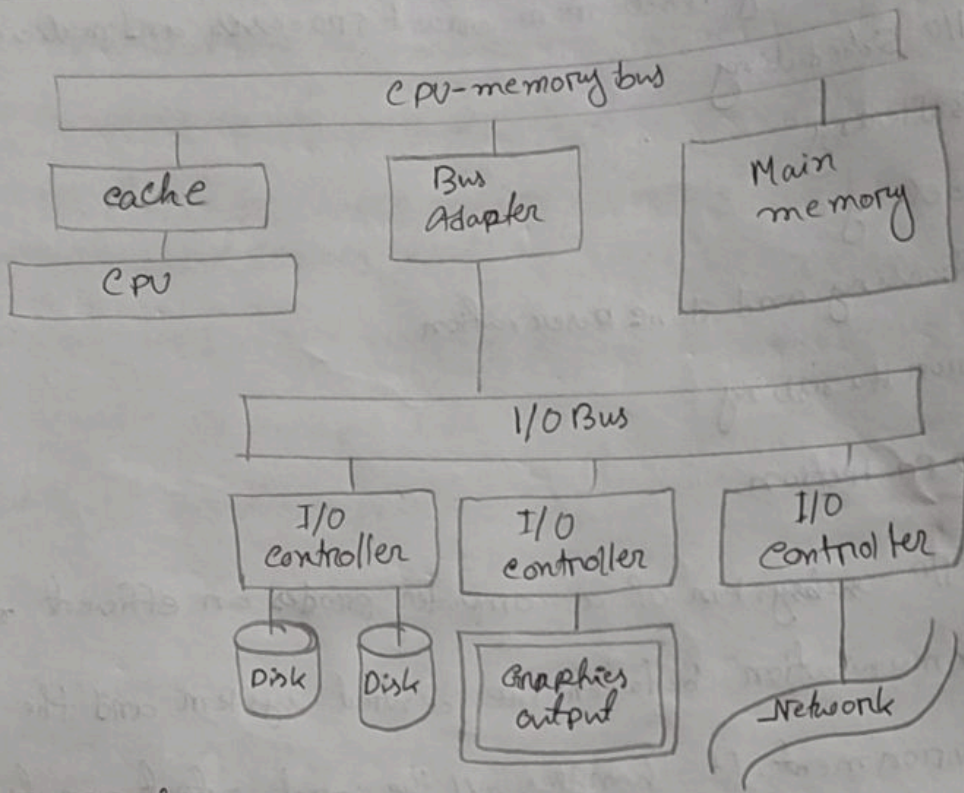 CPU-memory bus
cache
Bus
Adapter
Main
memory
CPU
I/O Bus
I/O
controller
I/O
controller
I/O
controller
Disk
Disk
Graphics
output
Network